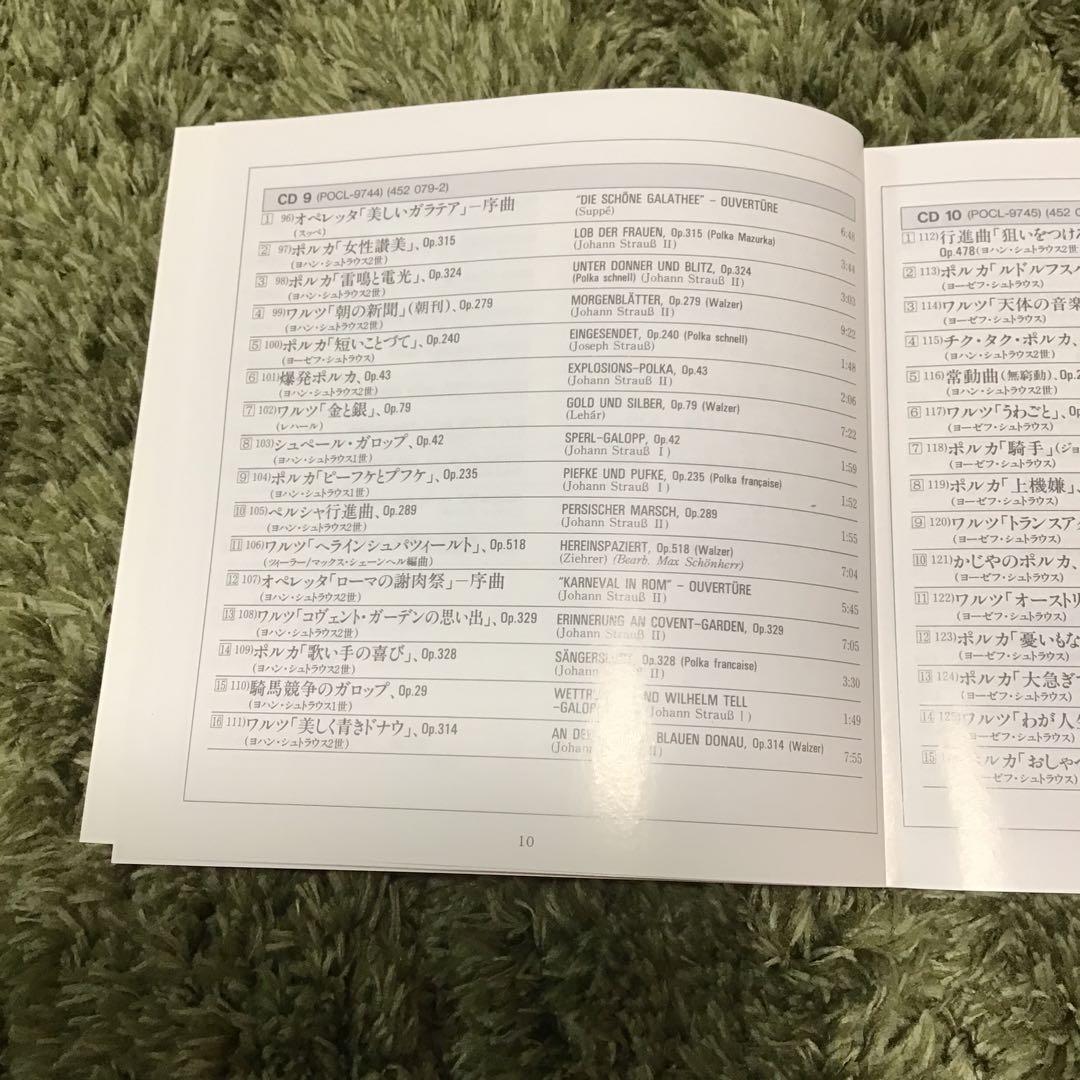 CD 9 (POCL-9744) (452 079-2)
1 96)オペレッタ「美しいガラテア」－序曲 "DIE SCHÖNE GALATHEE" - OUVERTÜRE
(スッペ) (Suppé) 6:48
2 97)ポルカ「女性讃美」、Op.315 LOB DER FRAUEN, Op.315 (Polka Mazurka)
(ヨハン・シュトラウス2世) (Johann Strauß II) 3:44
3 98)ポルカ「雷鳴と電光」、Op.324 UNTER DONNER UND BLITZ, Op.324
(ヨハン・シュトラウス2世) (Polka schnell) (Johann Strauß II) 3:03
4 99)ワルツ「朝の新聞」(朝刊)、Op.279 MORGENBLÄTTER, Op.279 (Walzer)
(ヨハン・シュトラウス2世) (Johann Strauß II) 9:22
5 100)ポルカ「短いことづて」、Op.240 EINGESENDET, Op.240 (Polka schnell)
(ヨーゼフ・シュトラウス) (Joseph Strauß) 1:48
6 101)爆発ポルカ、Op.43 EXPLOSIONS-POLKA, Op.43
(ヨハン・シュトラウス2世) (Johann Strauß II) 2:06
7 102)ワルツ「金と銀」、Op.79 GOLD UND SILBER, Op.79 (Walzer)
(レハール) (Lehár) 7:22
8 103)シュペール・ガロップ、Op.42 SPERL-GALOPP, Op.42
(ヨハン・シュトラウス1世) (Johann Strauß I) 1:59
9 104)ポルカ「ピーフケとプフケ」、Op.235 PIEFKE UND PUFKE, Op.235 (Polka française)
(ヨハン・シュトラウス1世) (Johann Strauß I) 1:52
10 105)ペルシャ行進曲、Op.289 PERSISCHER MARSCH, Op.289
(ヨハン・シュトラウス2世) (Johann Strauß II) 1:55
11 106)ワルツ「ヘラインシュパツィールト」、Op.518 HEREINSPAZIERT, Op.518 (Walzer)
(ツィーラー/マックス・シェーンヘル編曲) (Ziehrer) (Bearb. Max Schönherr) 7:04
12 107)オペレッタ「ローマの謝肉祭」－序曲 "KARNEVAL IN ROM" - OUVERTÜRE
(ヨハン・シュトラウス2世) (Johann Strauß II) 5:45
13 108)ワルツ「コヴェント・ガーデンの思い出」、Op.329 ERINNERUNG AN COVENT-GARDEN, Op.329
(ヨハン・シュトラウス2世) (Johann Strauß II) 7:05
14 109)ポルカ「歌い手の喜び」、Op.328 Op.328 (Polka francaise)
(ヨハン・シュトラウス2世) (Johann Strauß II) 3:30
15 110)騎馬競争のガロップ、Op.29 WILHELM TELL
(ヨハン・シュトラウス1世) -GALOPP (Johann Strauß I) 1:49
16 111)ワルツ「美しく青きドナウ」、Op.314 AN BLAUEN DONAU, Op.314 (Walzer)
(ヨハン・シュトラウス2世) (Johann Strauß II) 7:55
10
CD 10 (POCL-9745) (452
1 112)行進曲「狙いをつけ
Op.478 (ヨハン・シュトラウス
2 113)ポルカ「ルドルフス
(ヨーゼフ・シュトラウス)
3 114)ワルツ「天体の音楽
(ヨーゼフ・シュトラウス)
4 115)チク・タク・ポルカ、
(ヨハン・シュトラウス2世)
5 116)常動曲(無窮動)、Op.2
(ヨハン・シュトラウス2世)
6 117)ワルツ「うわごと」、Op
(ヨーゼフ・シュトラウス)
7 118)ポルカ「騎手」(ジョ
(ヨーゼフ・シュトラウス)
8 119)ポルカ「上機嫌」、
(ヨーゼフ・シュトラウス)
9 120)ワルツ「トランスア
(ヨーゼフ・シュトラウス)
10 121)かじやのポルカ、
(ヨーゼフ・シュトラウス)
11 122)ワルツ「オーストリ
(ヨーゼフ・シュトラウス)
12 123)ポルカ「憂いもな
(ヨーゼフ・シュトラウス)
13 124)ポルカ「大急ぎで
(ヨーゼフ・シュトラウス)
14 125)ワルツ「わが人
(ヨーゼフ・シュトラウス)
15 ポルカ「おしゃべ
ーゼフ・シュトラウス)